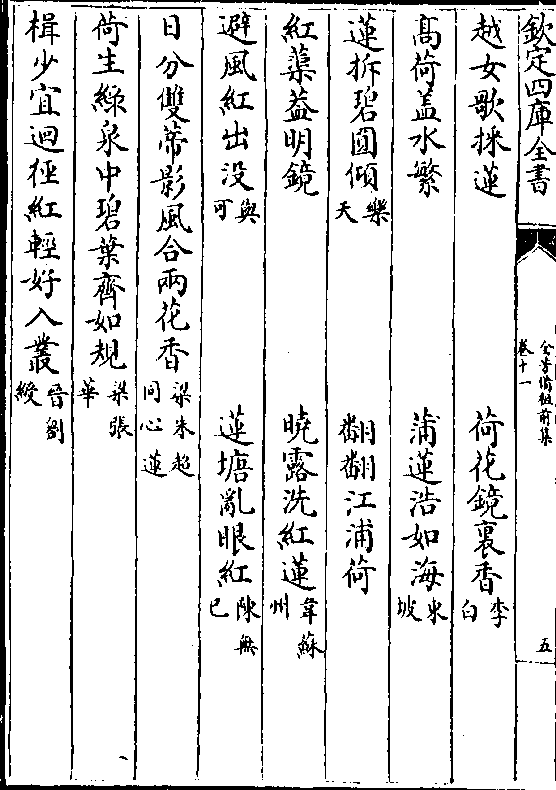 欽定四庫全書
全芳備祖前集
卷十一
五
越女歌採蓮　荷花鏡裏香李白
髙荷蓋水繁　蒲蓮浩如海東坡
蓮拆碧圓傾樂天　翻翻江浦荷
紅蕖葢明鏡　曉露洗紅蓮韋蘇州
避風紅出没與可　蓮塘亂眼紅陳無已
日分雙蒂影風合兩花香梁朱超同心蓮
荷生綠泉中碧葉齊如規梁張華
楫少宜迴徑紅輕好入叢晉劉綬